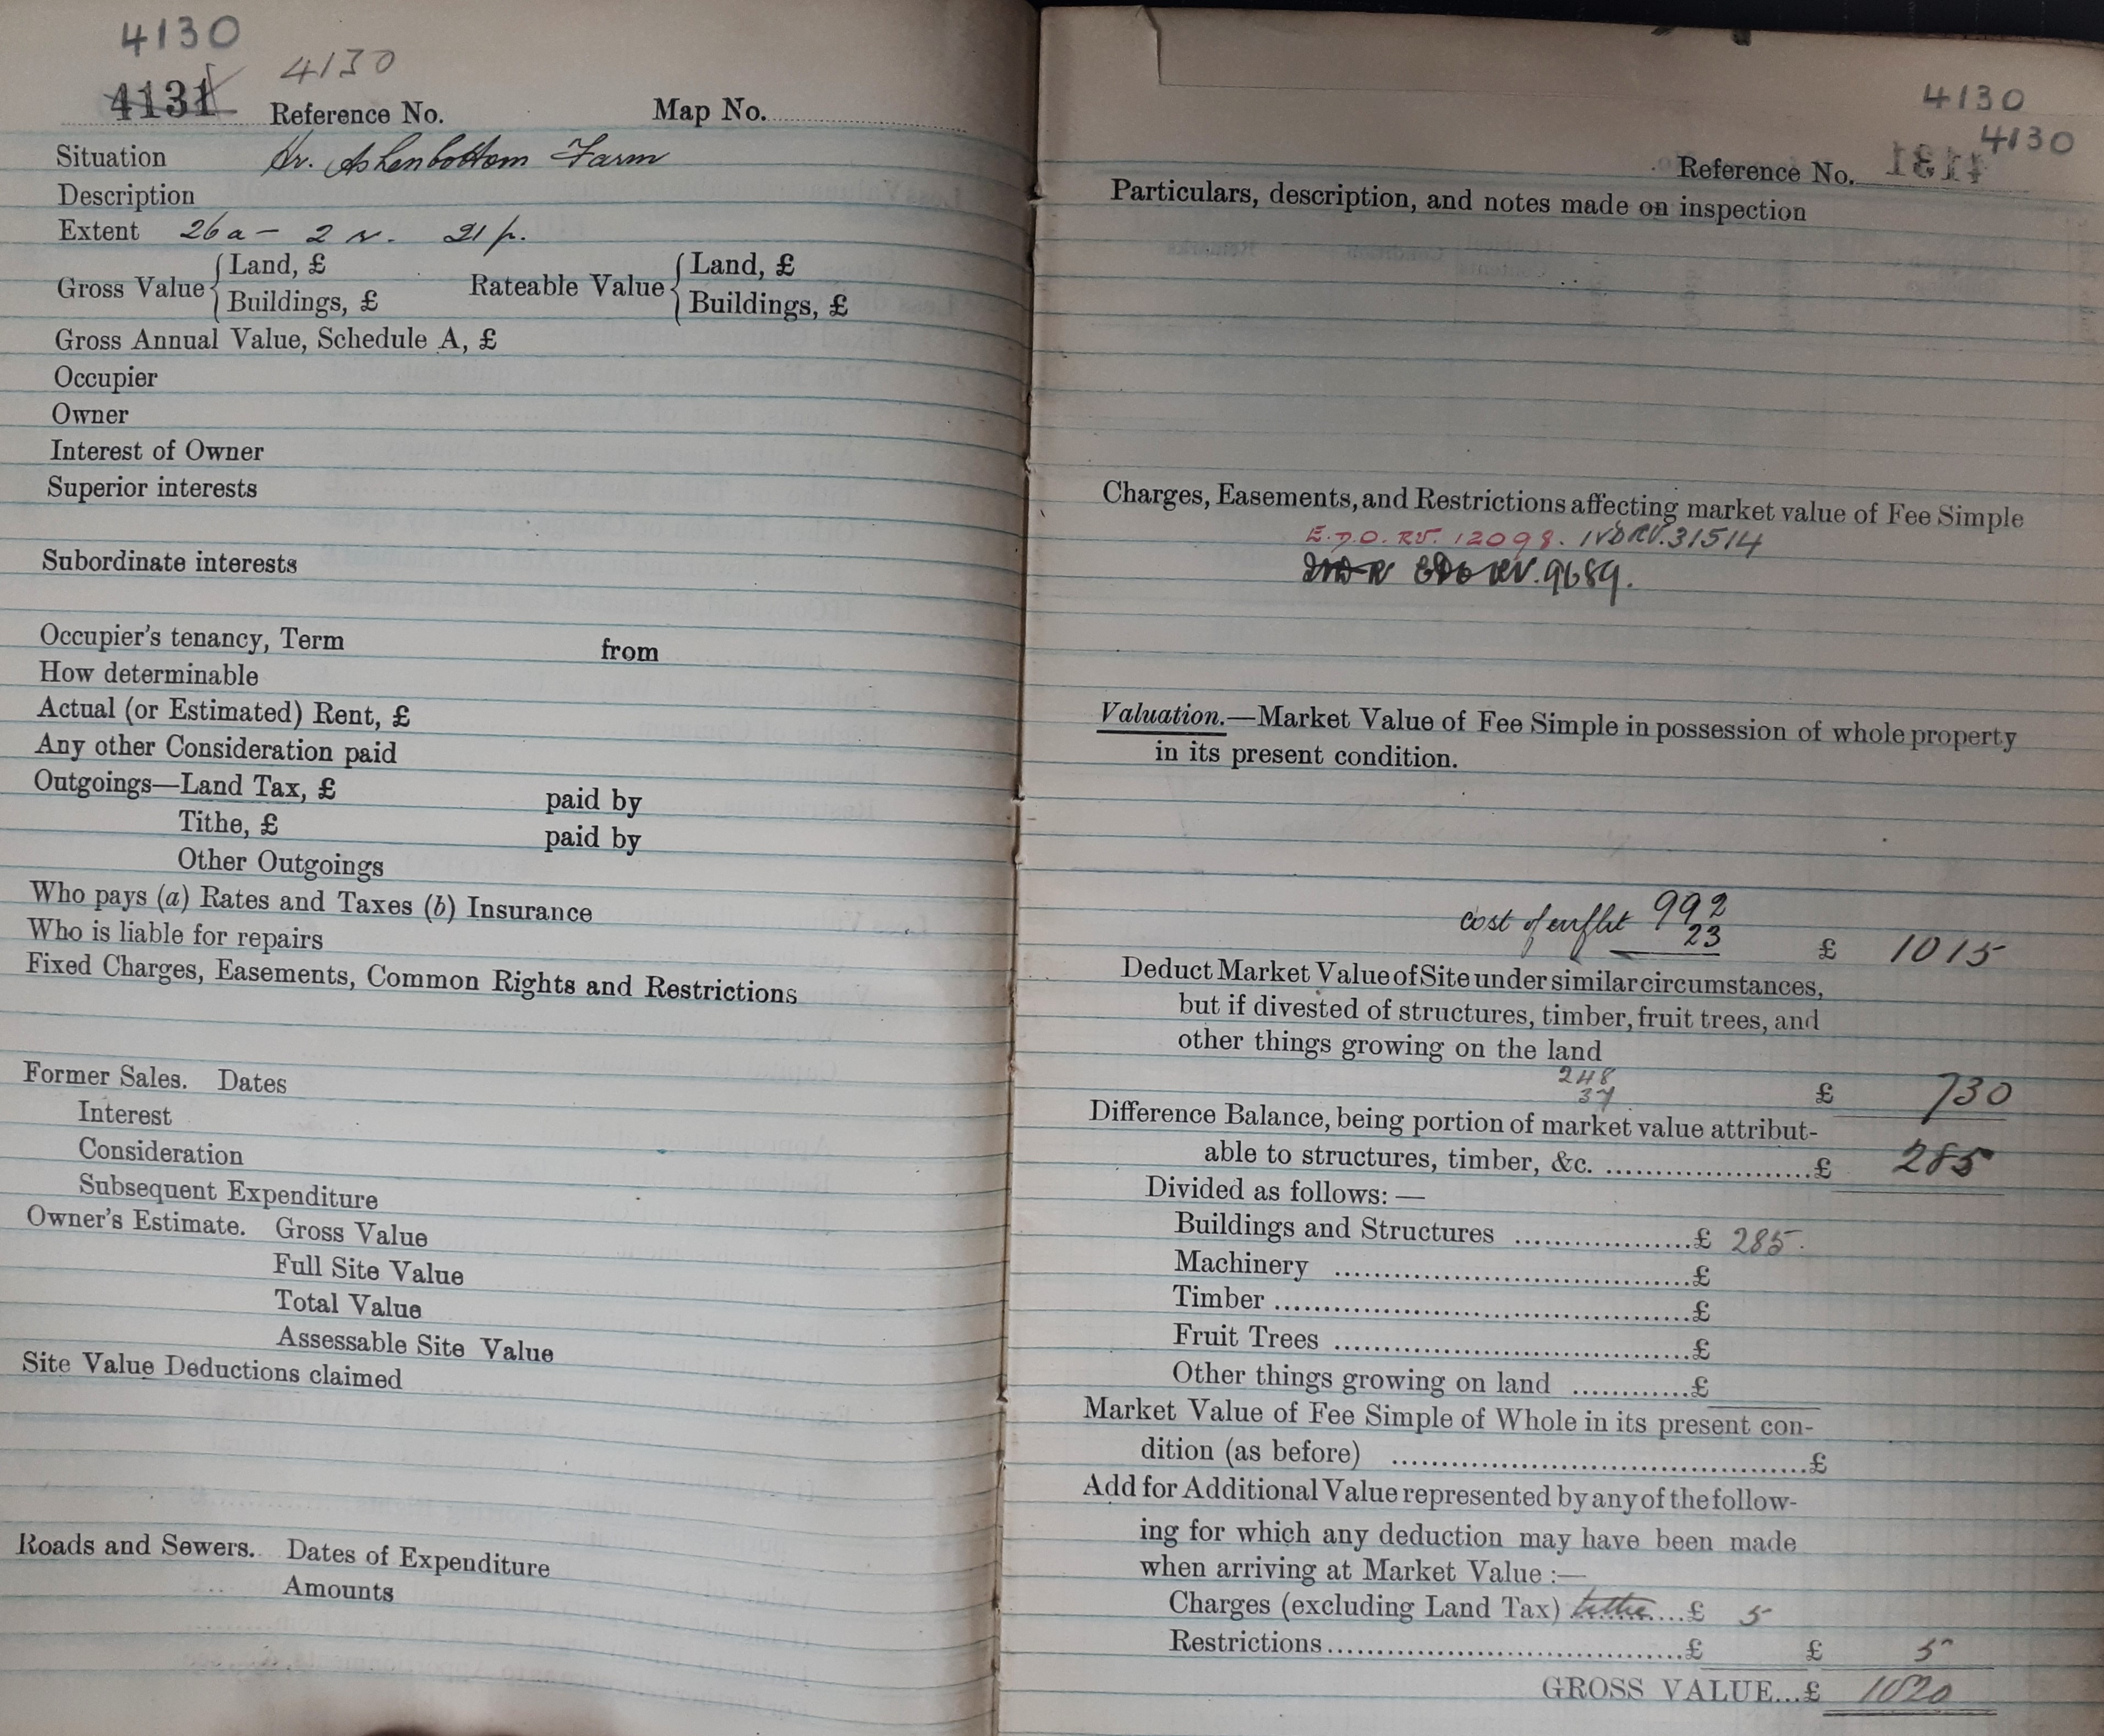 4130
4130
4131 Reference No. Map No.
Situation Hr. Ashenbottom Farm
Description
Extent 26a - 2 r. 21 p.
Gross Value { Land, £ Rateable Value { Land, £
Buildings, £ Buildings, £
Gross Annual Value, Schedule A, £
Occupier
Owner
Interest of Owner
Superior interests
Subordinate interests
Occupier's tenancy, Term from
How determinable
Actual (or Estimated) Rent, £
Any other Consideration paid
Outgoings—Land Tax, £ paid by
Tithe, £ paid by
Other Outgoings
Who pays (a) Rates and Taxes (b) Insurance
Who is liable for repairs
Fixed Charges, Easements, Common Rights and Restrictions
Former Sales. Dates
Interest
Consideration
Subsequent Expenditure
Owner's Estimate. Gross Value
Full Site Value
Total Value
Assessable Site Value
Site Value Deductions claimed
Roads and Sewers. Dates of Expenditure
Amounts
4130
4130
Reference No. 4131
Particulars, description, and notes made on inspection
Charges, Easements, and Restrictions affecting market value of Fee Simple
E.D.O. RV. 12098. IVD RV. 31514
EDO RV. 9689.
Valuation.—Market Value of Fee Simple in possession of whole property
in its present condition.
992
cost of 23 £ 1015
Deduct Market Value of Site under similar circumstances,
but if divested of structures, timber, fruit trees, and
other things growing on the land
248
37 £ 730
Difference Balance, being portion of market value attribut-
able to structures, timber, &c. ....................£ 285
Divided as follows: —
Buildings and Structures ..................£ 285.
Machinery ....................................£
Timber ..........................................£
Fruit Trees ....................................£
Other things growing on land ............£
Market Value of Fee Simple of Whole in its present con-
dition (as before) ..........................................£
Add for Additional Value represented by any of the follow-
ing for which any deduction may have been made
when arriving at Market Value :—
Charges (excluding Land Tax) tithe....£ 5
Restrictions....................................£ £ 5
GROSS VALUE...£ 1020